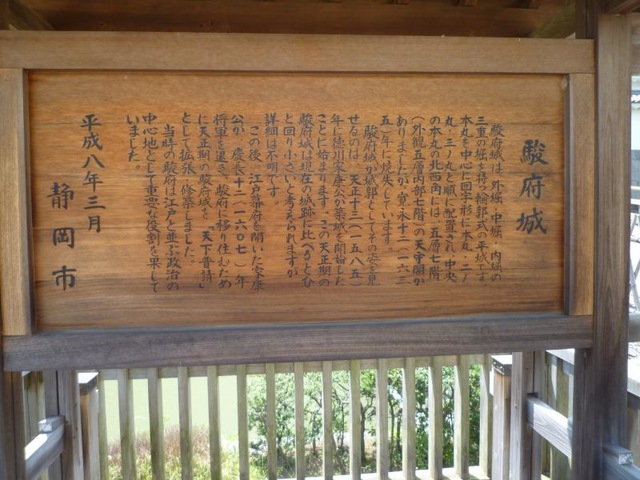 駿府城
駿府城は、外堀・中堀・内堀の
三重の堀を持つ輪郭式の平城です。
本丸を中心に回字形に本丸、二ノ
丸、三ノ丸と順に配置され、中央
の本丸の北西角には、五層七階
(外観五層内部七階)の天守閣が
ありましたが、寛永十二(一六三
五)年に焼失しています。
駿府城が城郭としてその姿を見
せるのは、天正十三(一五八五)
年に徳川家康公が築城を開始した
ことに始まります。この天正期の
駿府城は現在の城跡に比べるとひ
と回り小さいと考えられますが、
詳細は不明です。
この後、江戸幕府を開いた家康
公が、慶長十二(一六〇七)年
将軍を退き、駿府に移り住むため
に天正期の駿府城を「天下普請」
として拡張、修築しました。
当時の駿府は江戸と並ぶ政治の
中心地として重要な役割を果して
いました。
平成八年三月
静岡市